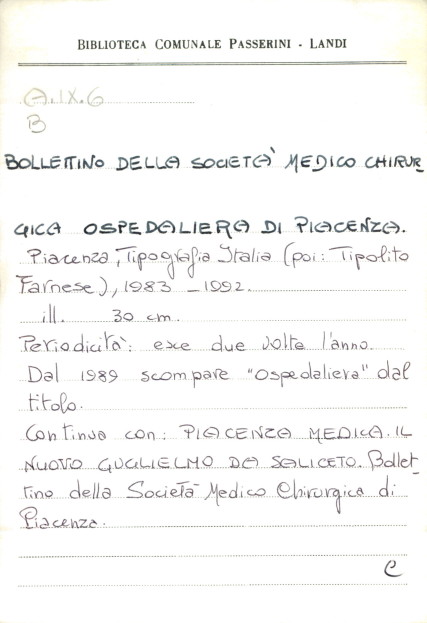 BIBLIOTECA COMUNALE PASSERINI - LANDI
A.IX.6
B
BOLLETTINO DELLA SOCIETA' MEDICO CHIRUR
GICA OSPEDALIERA DI PIACENZA.
Piacenza, Tipografia Italia (poi: Tipolito
Farnese), 1983 _1992.
ill. 30 cm.
Periodicità: esce due volte l'anno.
Dal 1989 scompare "Ospedaliera" dal
titolo.
Continua con: PIACENZA MEDICA. IL
NUOVO GUGLIELMO DA SALICETO. Bollet-
tino della Società Medico Chirurgica di
Piacenza.
C